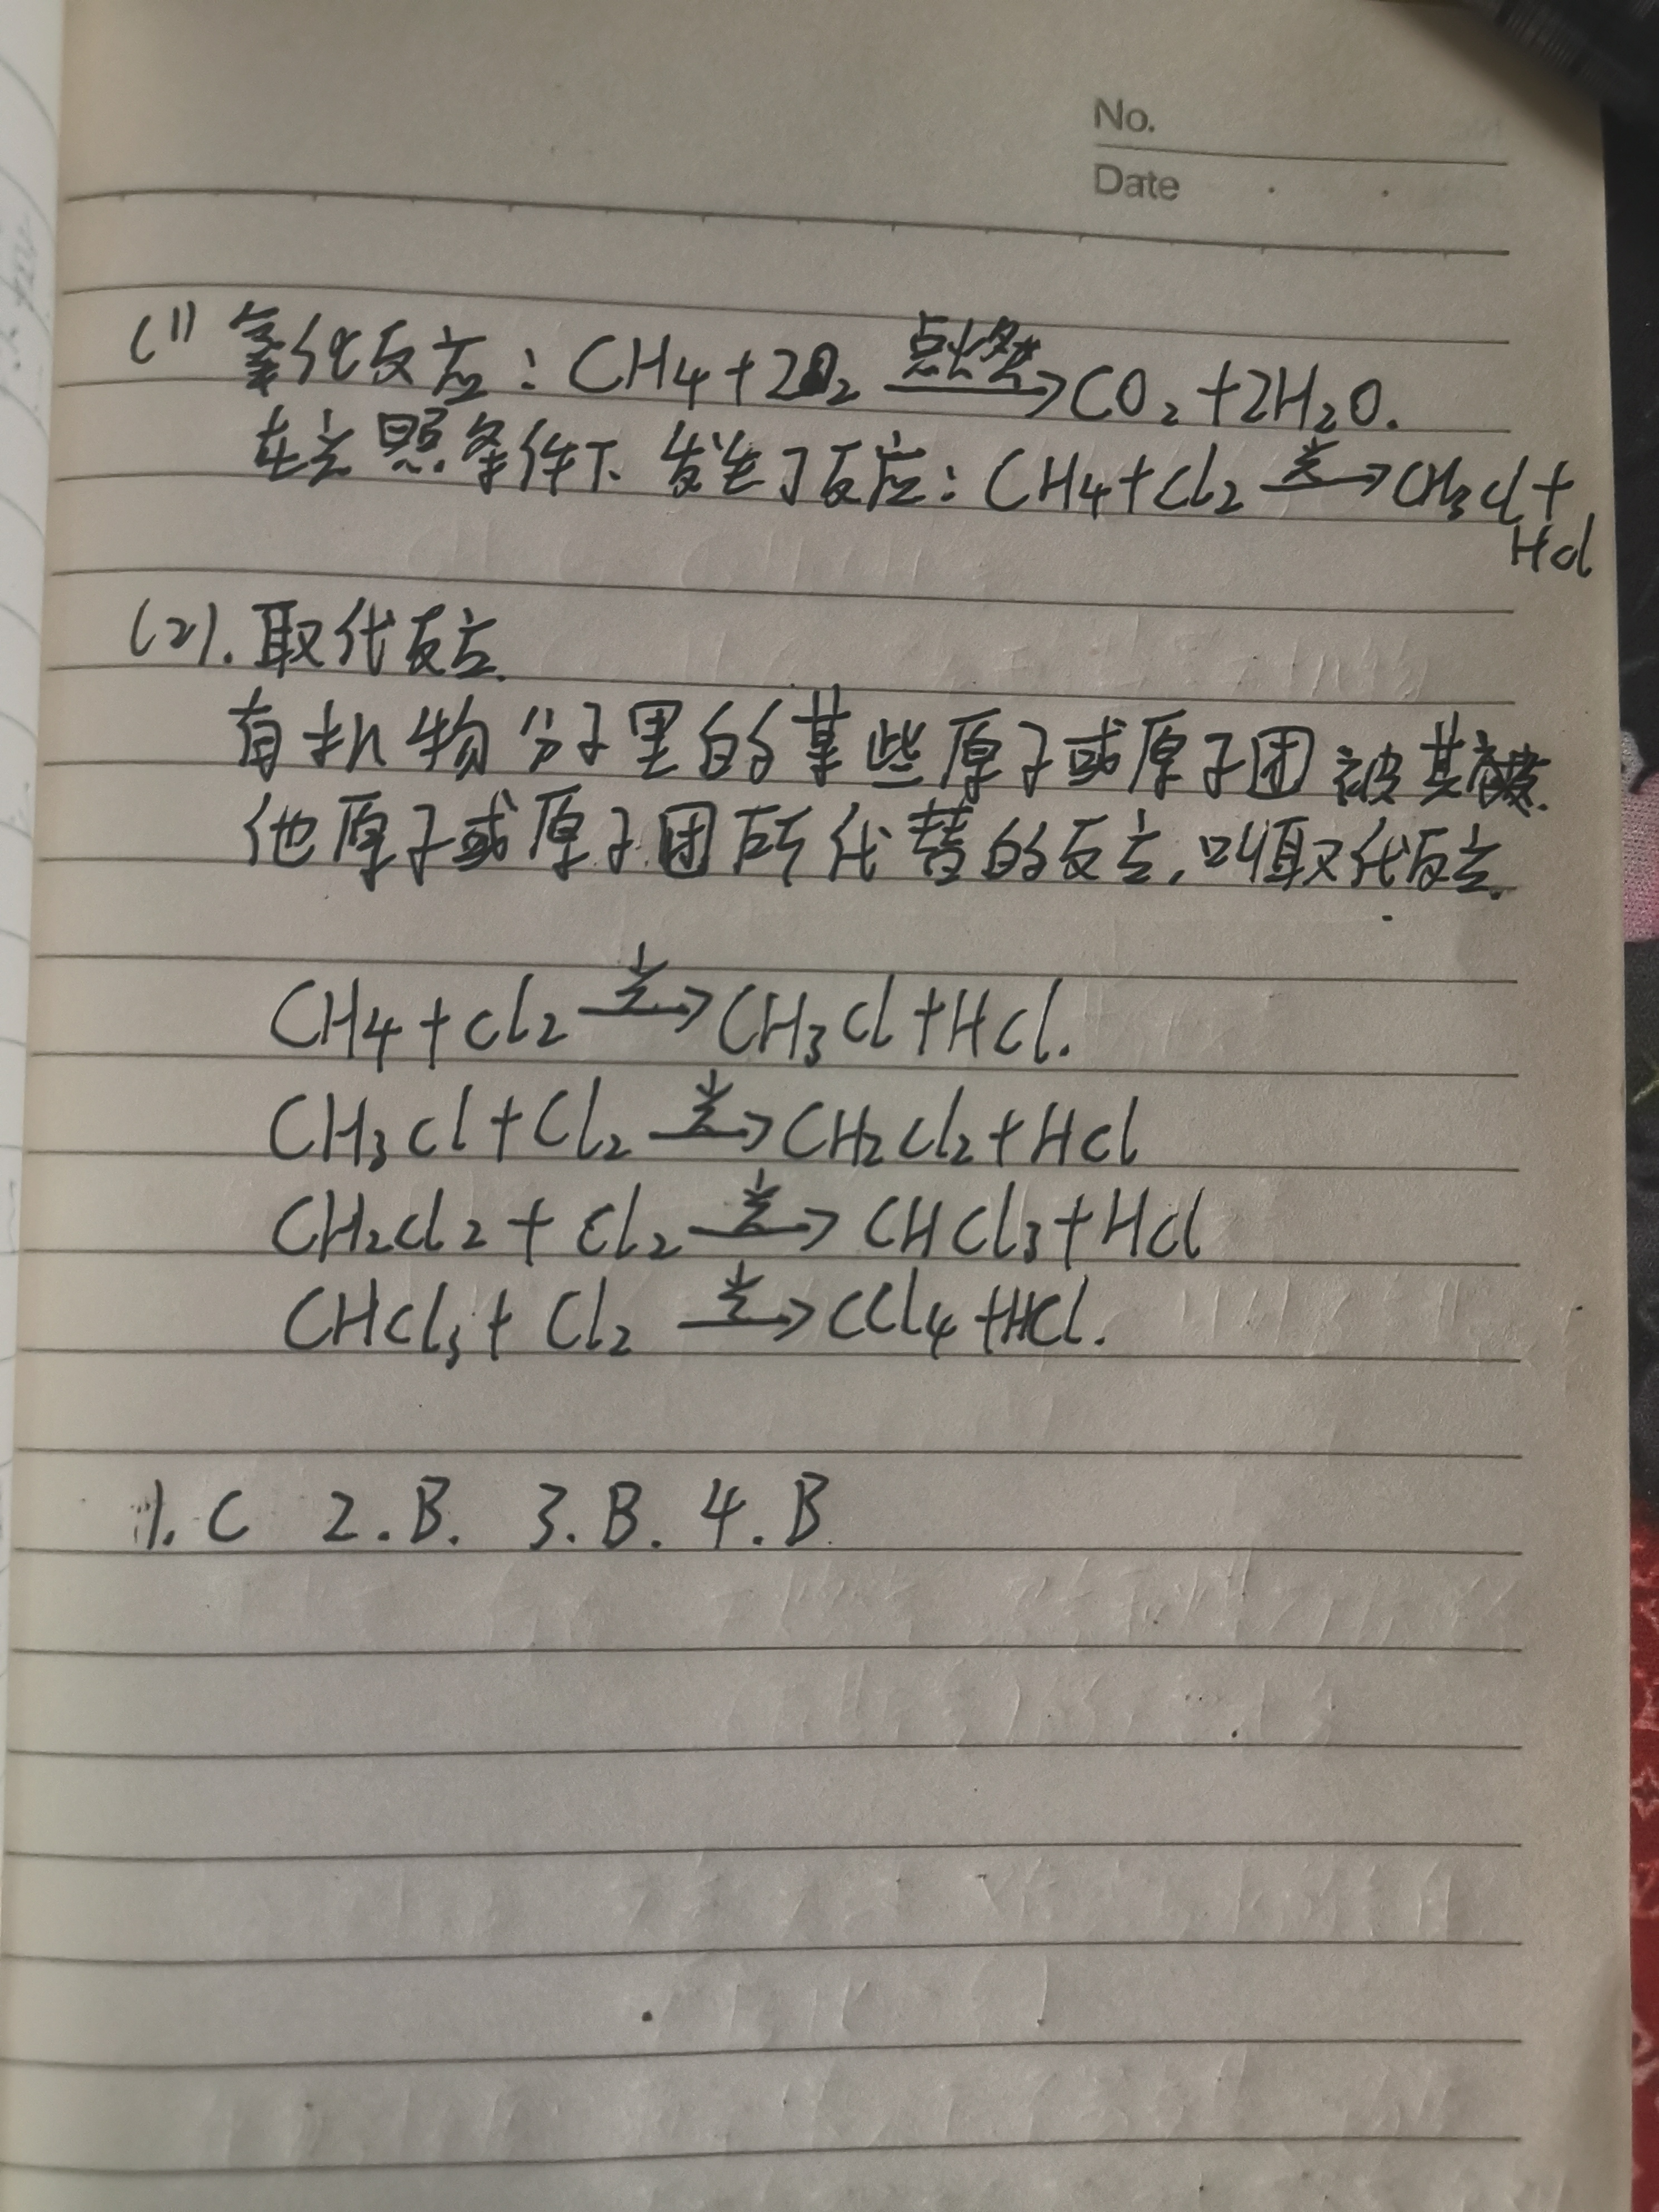 No.
Date
(1) 氧化反应：CH₄+2O₂ 点燃→ CO₂+2H₂O.
在光照条件下发生了反应：CH₄+Cl₂ 光→ CH₃Cl+
HCl
(2). 取代反应.
有机物分子里的某些原子或原子团被其
他原子或原子团所代替的反应,叫取代反应.
CH₄+Cl₂ 光→ CH₃Cl+HCl.
CH₃Cl+Cl₂ 光→ CH₂Cl₂+HCl
CH₂Cl₂+Cl₂ 光→ CHCl₃+HCl
CHCl₃+Cl₂ 光→ CCl₄+HCl.
1. C 2. B. 3. B. 4. B